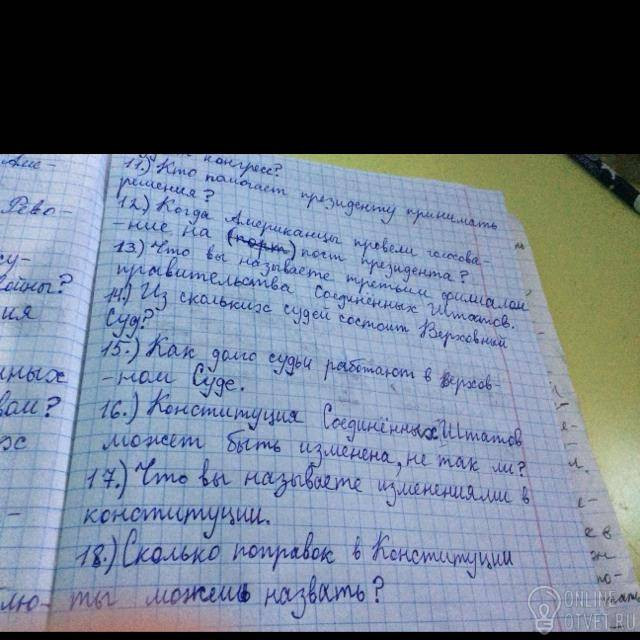 Аме-
Рево-
су-
войны?
ия
нных
вам?
их
-
лю-
конгресс?
11.) Кто помогает президенту принимать
решения?
12.) Когда Американцы провели голосова-
-ние на (порт) пост президента?
13.) Что вы называете третьим филиалом
правительства Соединённых Штатов.
14.) Из скольких судей состоит Верховный
Суд?
15.) Как долго судьи работают в Верхов-
-ном Суде.
16.) Конституция Соединённых Штатов
может быть изменена, не так ли?
17.) Что вы называете изменениями в
конституции.
18.) Сколько поправок в Конституции
ты можешь назвать?
ONLINE
OTVET.RU